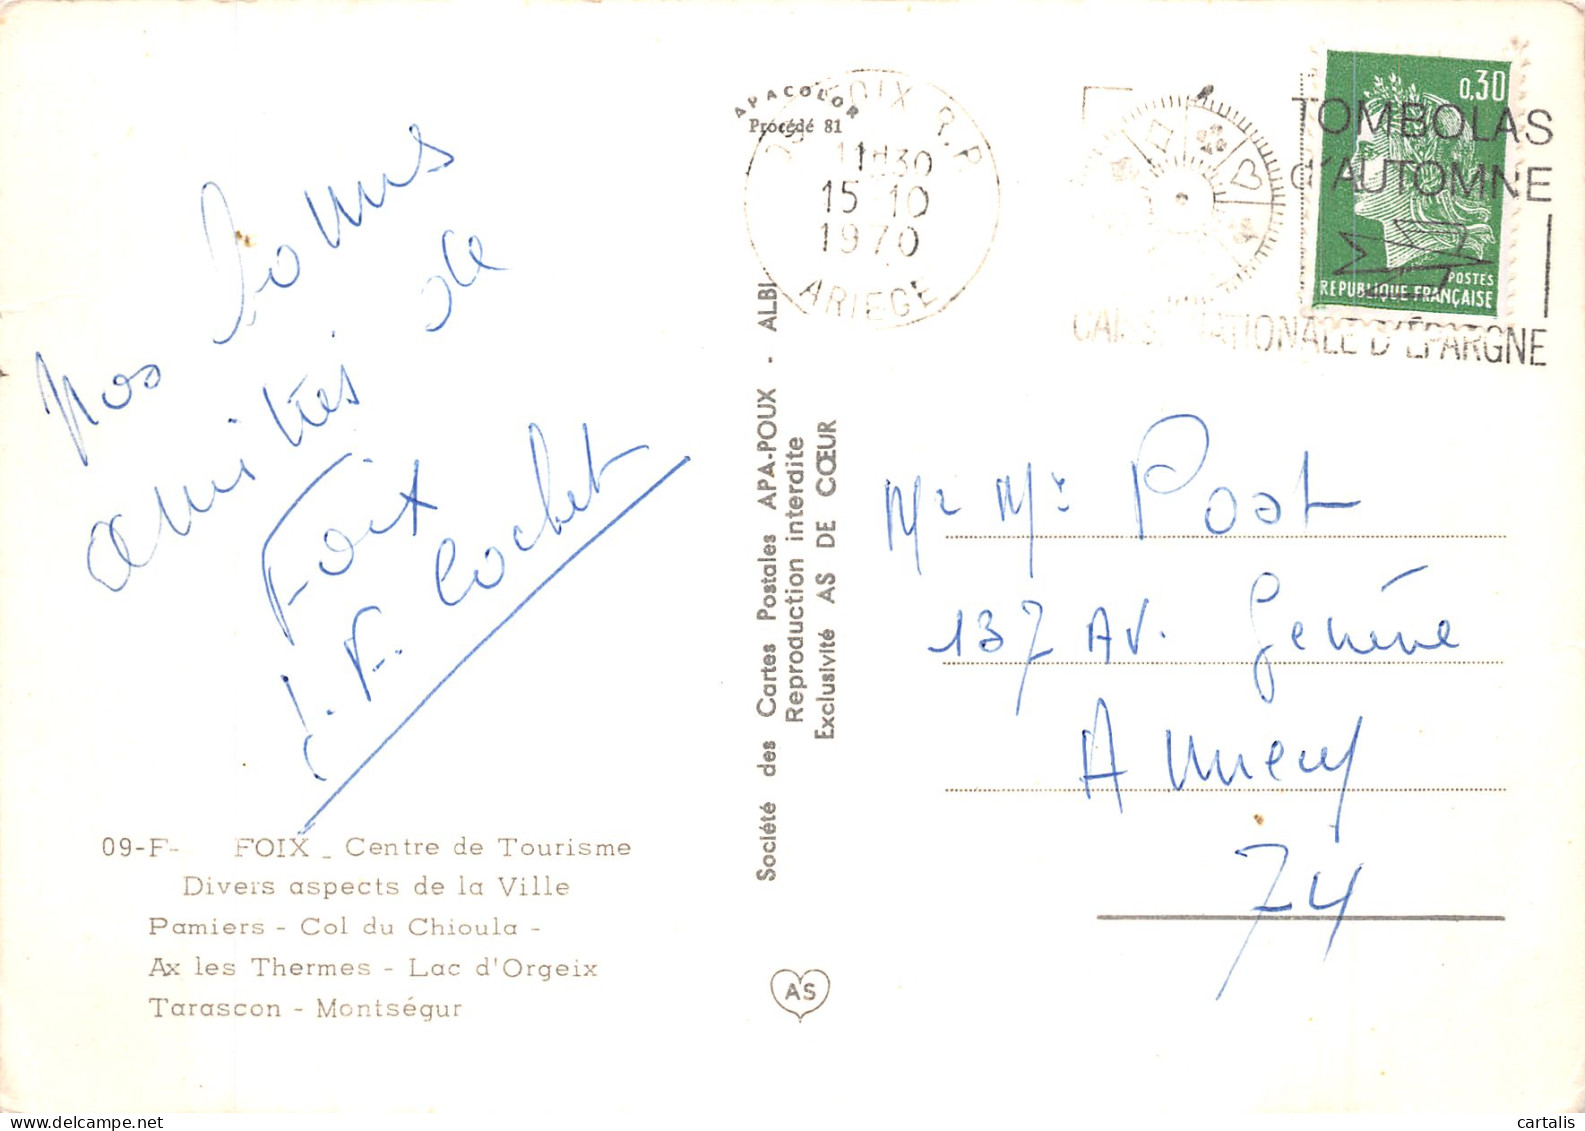 Nos bonnes
amitiés de
Foix
J. F. Cochet
09-F- FOIX _ Centre de Tourisme
Divers aspects de la Ville
Pamiers - Col du Chioula -
Ax les Thermes - Lac d'Orgeix
Tarascon - Montségur
APACOLOR
Procédé 81
Société des Cartes Postales APA-POUX - ALBI
Reproduction interdite
Exclusivité AS DE CŒUR
AS
09 FOIX R.P.
11H30
15 10
1970
ARIEGE
TOMBOLAS
d'AUTOMNE
CAISSE NATIONALE D'ÉPARGNE
0,30
POSTES
REPUBLIQUE FRANÇAISE
Mr Mr Post
137 Av. Genève
Annecy
74
delcampe.net
cartalis